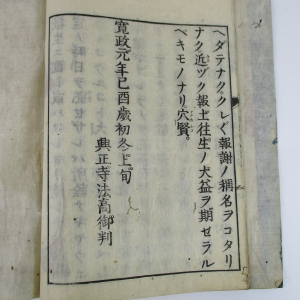 ヘダテナククレ〲報謝ノ稱名ヲコタリ
ナク近ヅク報土往生ノ大益ヲ期セラル
ベキモノナリ穴賢。
寛政元年己酉歳初冬上旬
興正寺法高御判